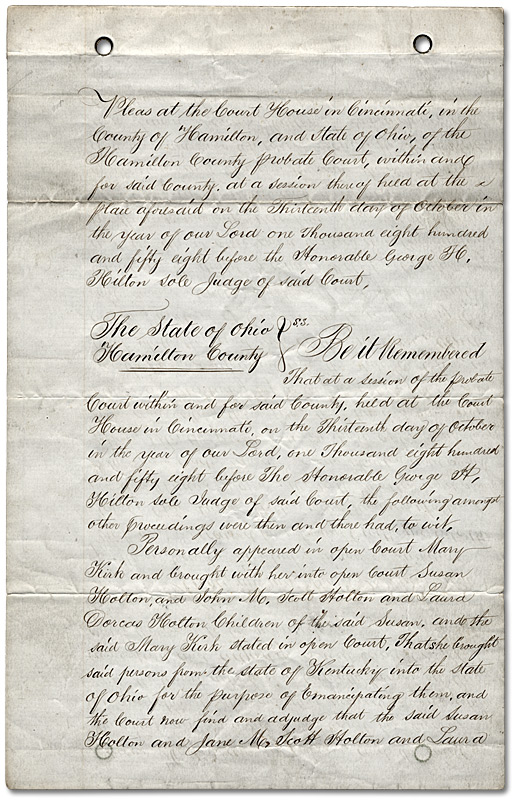 Pleas at the Court House in Cincinnati, in the
County of Hamilton, and State of Ohio, of the
Hamilton County Probate Court, within and
for said County. at a session thereof held at the
place aforesaid on the Thirteenth day of October in
the year of our Lord one Thousand eight hundred
and fifty eight before the Honorable George H.
Hilton sole Judge of said Court,
The State of Ohio } S.S.
Hamilton County } Be it Remembered
That at a session of the Probate
Court within and for said County, held at the Court
House in Cincinnati, on the Thirteenth day of October
in the year of our Lord, one Thousand eight hundred
and fifty eight before The Honorable George H,
Hilton sole Judge of said Court, the following amongst
other Proceedings were then and there had, to wit,
Personally appeared in open Court Mary
Kirk and brought with her into open Court Susan
Holton, and John M, Scott Holton and Laura
Dorcas Holton Children of the said Susan. and the
said Mary Kirk stated in open Court, That she brought
said persons from the state of Kentucky into the state
of Ohio for the purpose of Emancipating them, and
the Court now find and adjudge that the said Susan
Holton and Jane M, Scott Holton and Laura